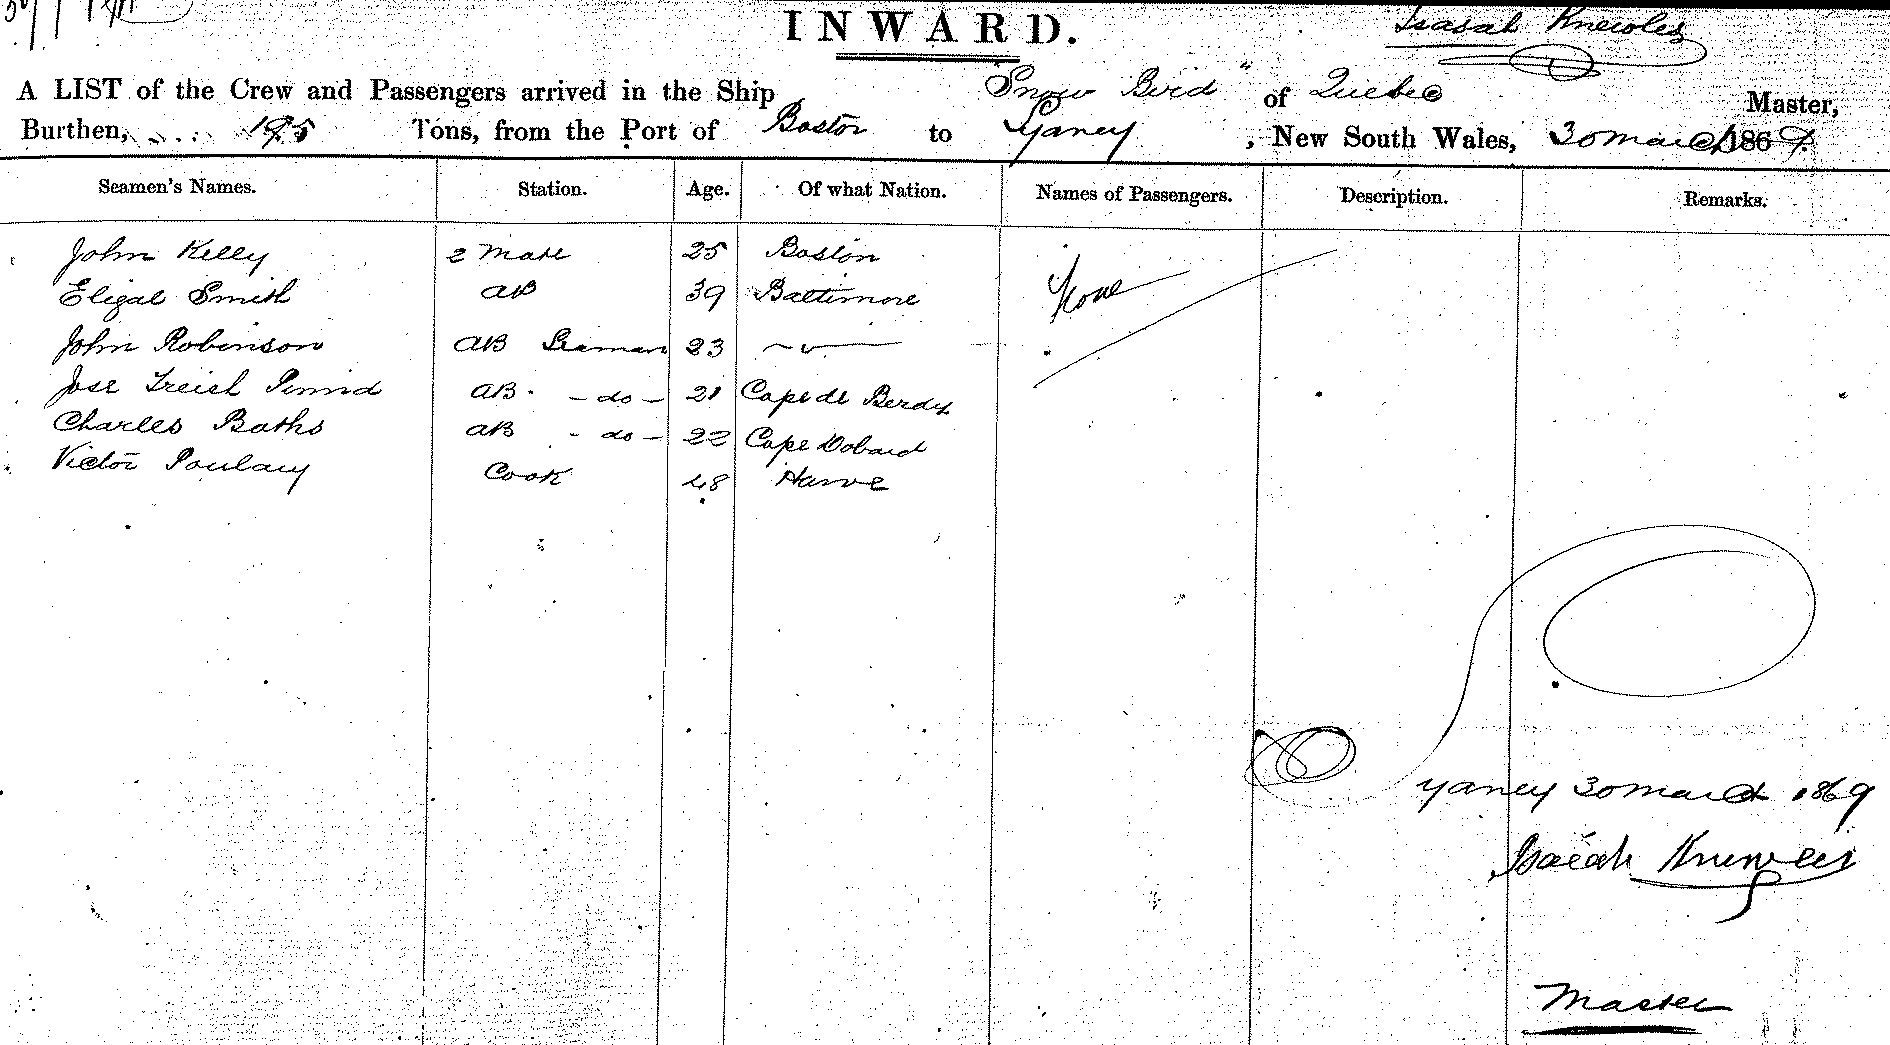 INWARD.
Isaiah Knowles
A LIST of the Crew and Passengers arrived in the Ship "Snow Bird" of Quebec Master,
Burthen, 195 Tons, from the Port of Boston to Syaney, New South Wales, 30 march 1869.
Seamen's Names. Station. Age. Of what Nation. Names of Passengers. Description. Remarks.
John Kelly 2 Mate 25 Boston None
Eligal Smith AB 39 Baltimore
John Robinson AB Seaman 23
Jose AB - do - 21 Cape de Berdy
Charles Baths AB - do - 22 Cape
Victor Cook 48 Harve
30 march 1869
Isaiah
Master